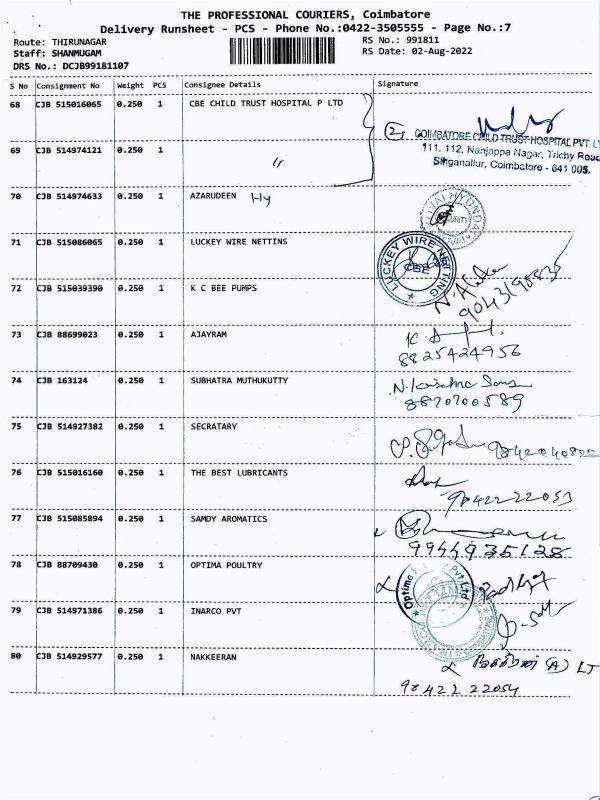 THE PROFESSIONAL COURIERS, Coimbatore
Delivery Runsheet - PCS - Phone No.:0422-3505555 - Page No.:7
Route: THIRUNAGAR
Staff: SHANMUGAM
DRS No.: DCJB99181107
RS No.: 991811
RS Date: 02-Aug-2022
S No Consignment No Weight PCS Consignee Details Signature
68 CJB 515016065 0.250 1 CBE CHILD TRUST HOSPITAL P LTD
2 COIMBATORE CHILD TRUST HOSPITAL PVT. LT
111, 112, Nanjappa Nagar, Trichy Road
Singanallur, Coimbatore - 641 005.
69 CJB 514974121 0.250 1 "
70 CJB 514974633 0.250 1 AZARUDEEN Hy
71 CJB 515086065 0.250 1 LUCKEY WIRE NETTINS
LUCKEY WIRE NETTING
CBE
72 CJB 515039390 0.250 1 K C BEE PUMPS
73 CJB 88699023 0.250 1 AJAYRAM
8825424956
74 CJB 163124 0.250 1 SUBHATRA MUTHUKUTTY
8870700589
75 CJB 514927382 0.250 1 SECRATARY
76 CJB 515016160 0.250 1 THE BEST LUBRICANTS
9842222053
77 CJB 515085894 0.250 1 SAMDY AROMATICS
9944935128
78 CJB 88709430 0.250 1 OPTIMA POULTRY
79 CJB 514971386 0.250 1 INARCO PVT
80 CJB 514929577 0.250 1 NAKKEERAN
98422 22054